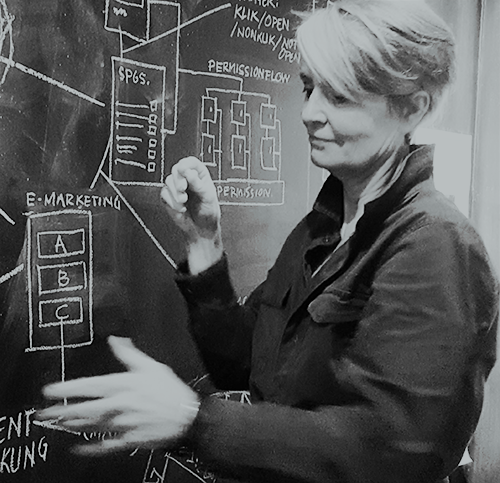 KLIK/OPEN
/NONKLIK/NOT
OPEN
SPGS.
PERMISSIONFLOW
PERMISSION.
E-MARKETING
A
B
C